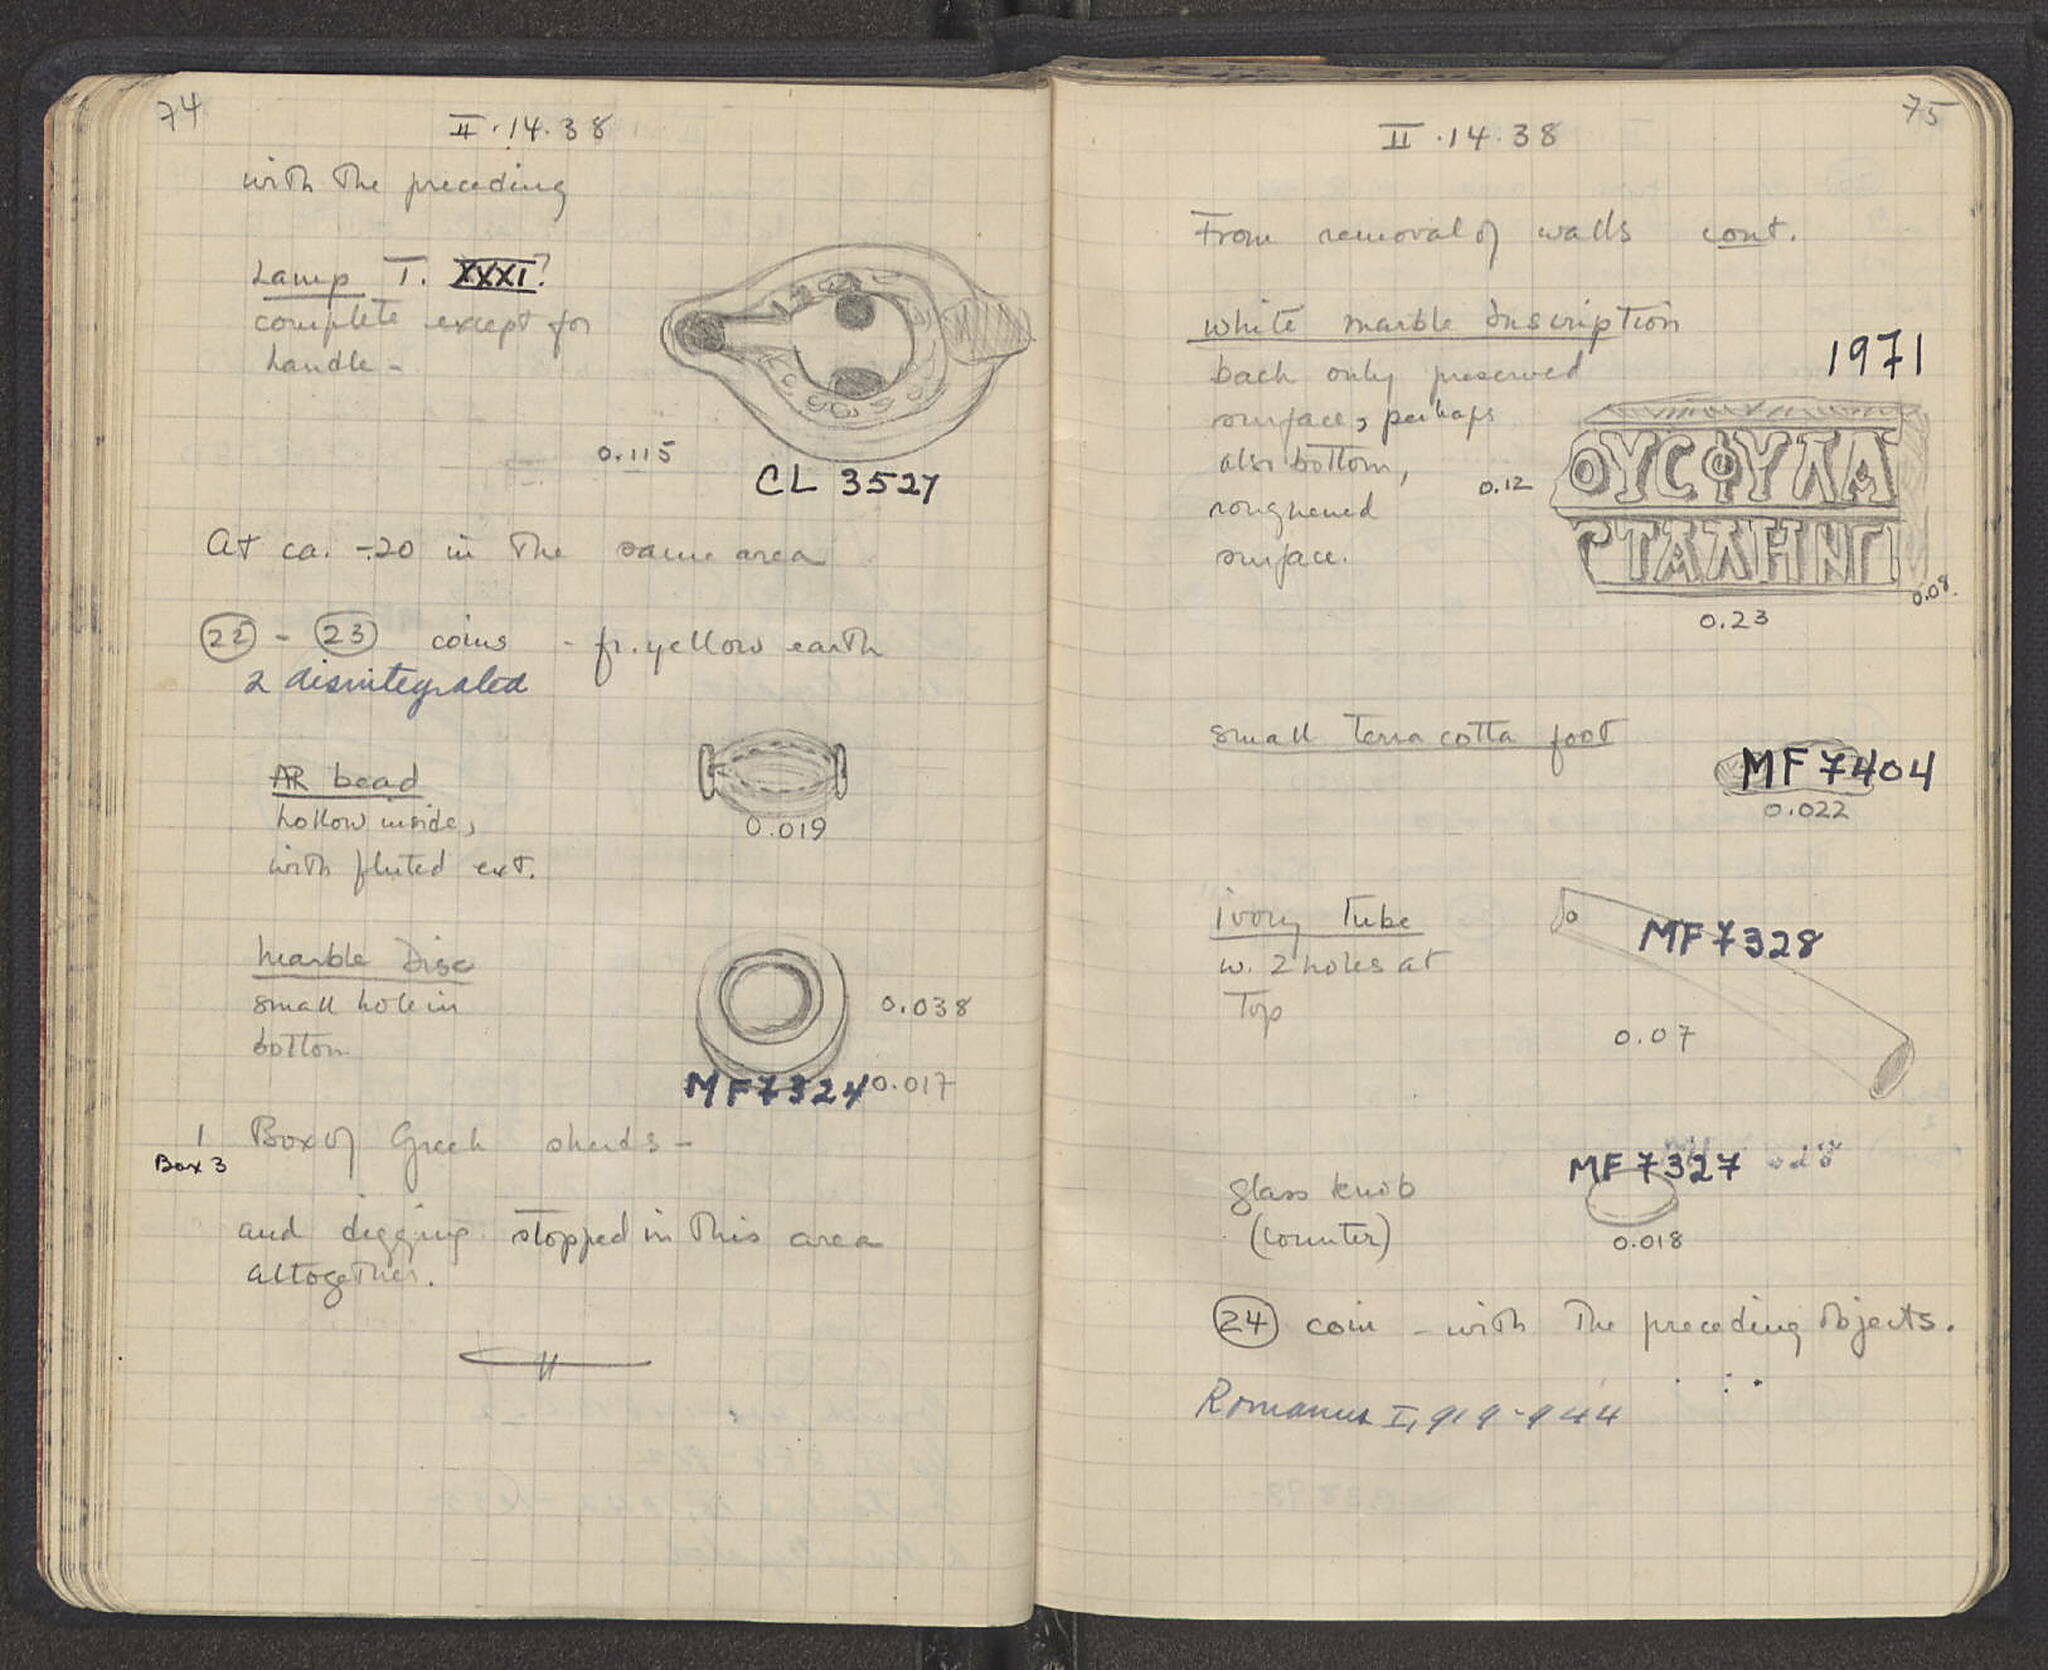 74
II.14.38
with the preceding
Lamp T. XXXI?
complete except for
handle -
0.115
CL 3527
At ca. -.20 in the same area
22 - 23 coins - fr. yellow earth
2 disintegrated
AR bead
hollow inside,
with fluted ext.
0.019
Marble Disc
small hole in
bottom
0.038
MF 7324 0.017
1 Box of Greek sherds -
Box 3
and digging stopped in this area
altogether.
75
II.14.38
From removal of walls cont.
White marble Inscription
1971
back only preserved
surface, perhaps
also bottom,
roughened
surface.
0.12
ΟΥCΦΥΛΑ
CΤΑΛΗΝΠ
0.08
0.23
small terra cotta foot
MF 7404
0.022
ivory Tube
w. 2 holes at
Top
MF 7328
0.07
MF 7327
glass knob
(counter)
0.018
24 coin - with the preceding objects.
Romanus I, 919-944